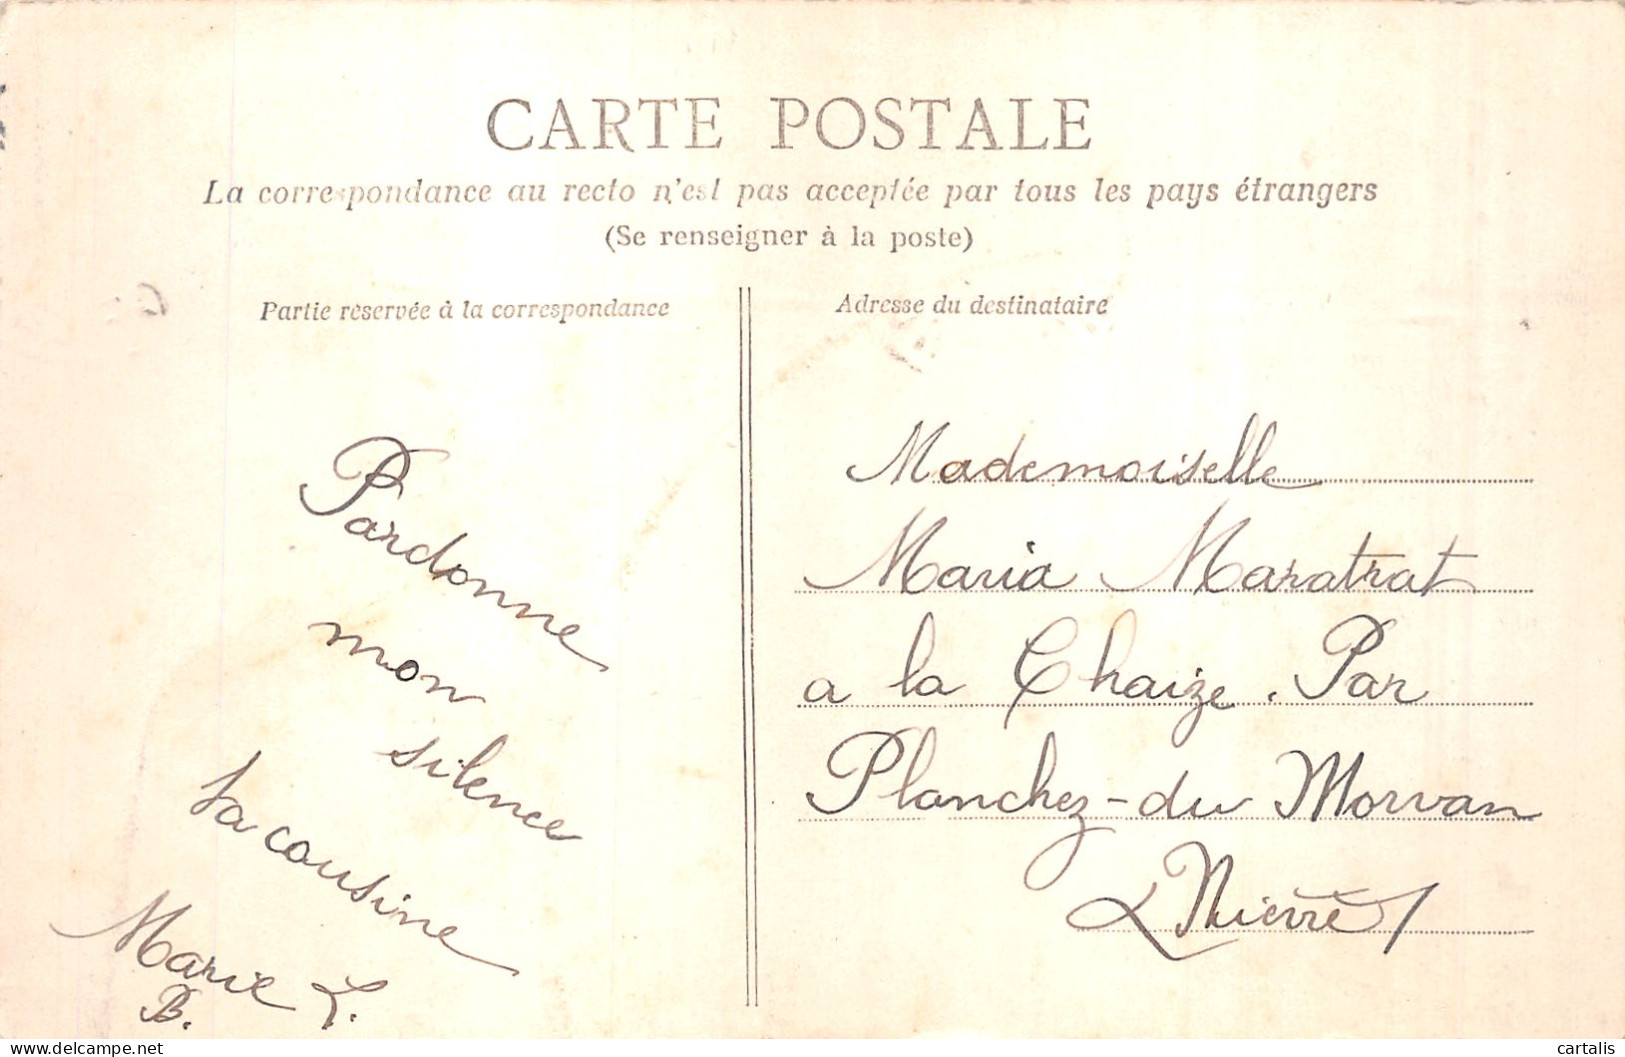 CARTE POSTALE
La correspondance au recto n'est pas acceptée par tous les pays étrangers
(Se renseigner à la poste)
Partie réservée à la correspondance
Pardonne
mon
silence
ta cousine
Marie L.
B.
Adresse du destinataire
Mademoiselle
Maria Maratrat
a la Chaize. Par
Planchez-du Morvan
Nièvre
www.delcampe.net
cartalis